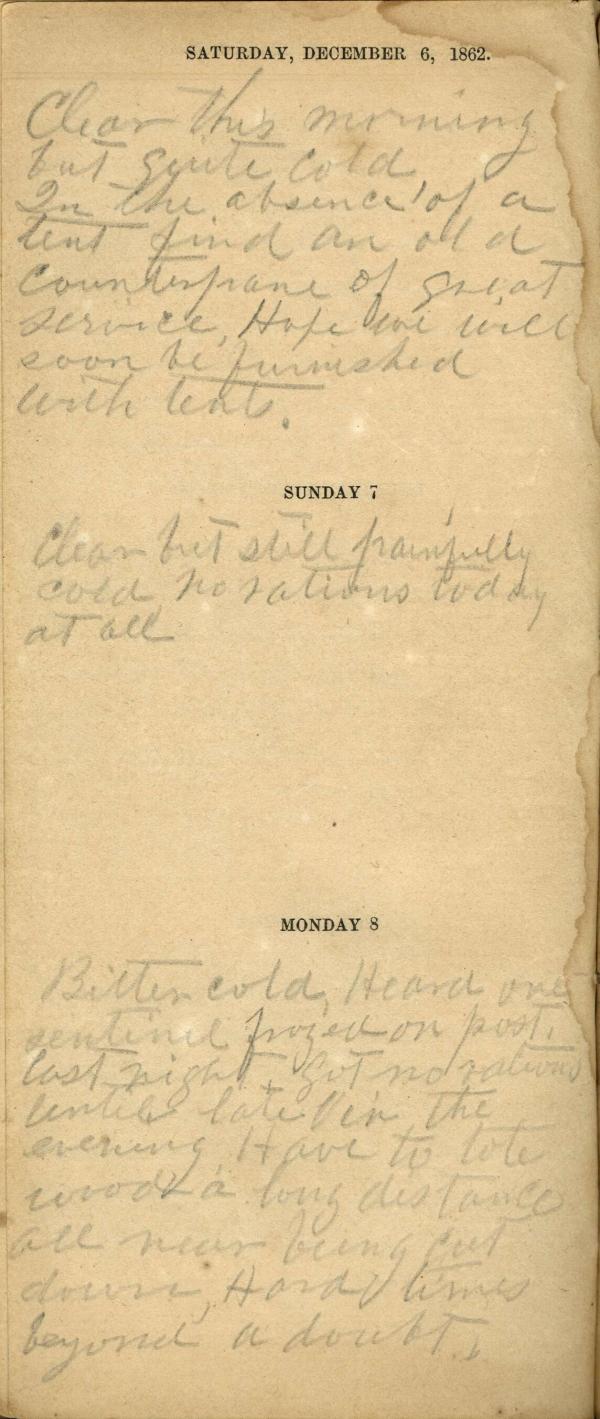 SATURDAY, DECEMBER 6, 1862.
Clear this morning
but quite cold
In the absence of a
tent find an old
counterpane of great
service, Hope we will
soon be furnished
with tents.
SUNDAY 7
Clear but still painfully
cold No rations today
at all
MONDAY 8
Bitter cold, Heard one
sentinel frozed on post.
last night. Got no rations
until late in the
evening Have to tote
wood a long distance
all near being cut
down, Hard times
beyond a doubt.